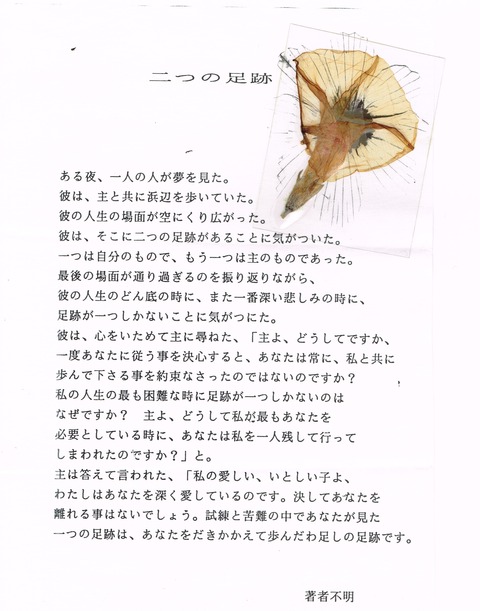 二つの足跡
ある夜、一人の人が夢を見た。
彼は、主と共に浜辺を歩いていた。
彼の人生の場面が空にくり広がった。
彼は、そこに二つの足跡があることに気がついた。
一つは自分のもので、もう一つは主のものであった。
最後の場面が通り過ぎるのを振り返りながら、
彼の人生のどん底の時に、また一番深い悲しみの時に、
足跡が一つしかないことに気がつにた。
彼は、心をいためて主に尋ねた、「主よ、どうしてですか、
一度あなたに従う事を決心すると、あなたは常に、私と共に
歩んで下さる事を約束なさったのではないのですか？
私の人生の最も困難な時に足跡が一つしかないのは
なぜですか？　主よ、どうして私が最もあなたを
必要としている時に、あなたは私を一人残して行って
しまわれたのですか？」と。
主は答えて言われた、「私の愛しい、いとしい子よ、
わたしはあなたを深く愛しているのです。決してあなたを
離れる事はないでしょう。試練と苦難の中であなたが見た
一つの足跡は、あなたをだきかかえて歩んだわ足しの足跡です。
著者不明